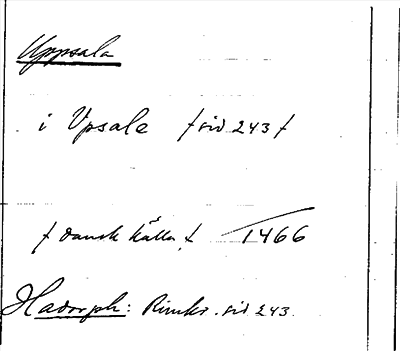 Uppsala
i Vpsale / sid 243 /
/ dansk källa / 1466
Hadorph: Rimkr. sid 243.